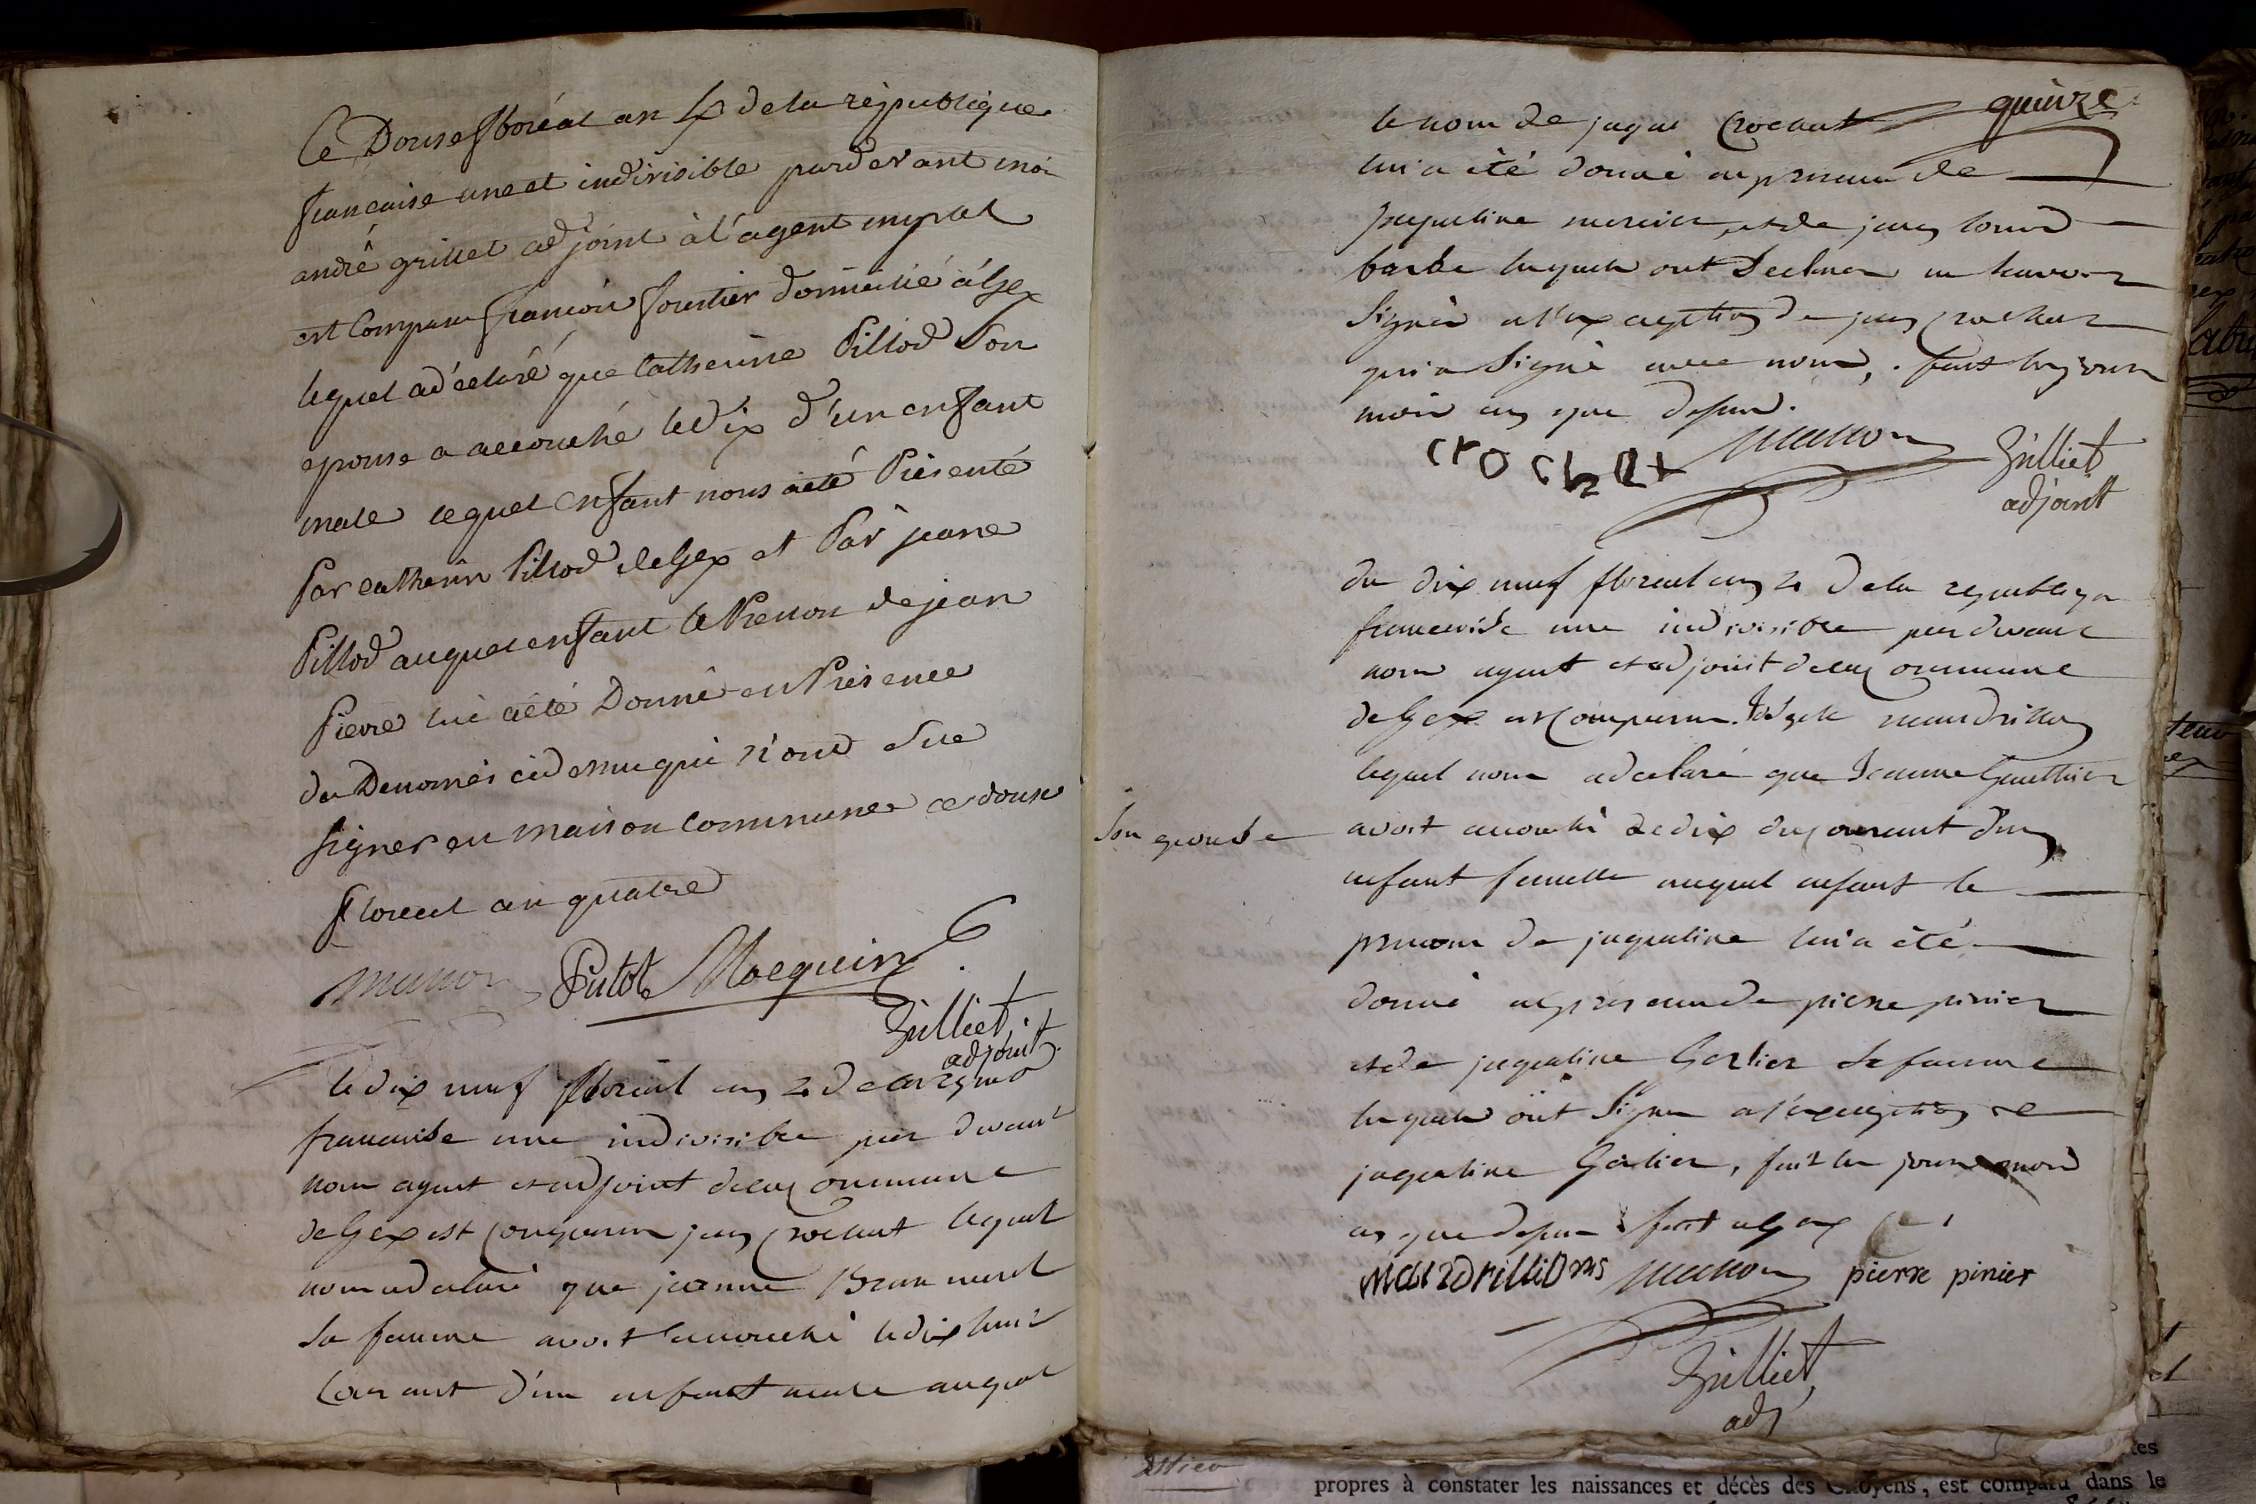 Ce Douse floréal an 4 de la republique
francaise une et indivisible pardevant moi
andré grillet adjoint à l'agent mpal
est Comparu francois fournier domicilié à Gex
lequel a déclaré que Catherine Pillod Son
epouse a accouché le dix d'un enfant
male lequel enfant nous a été Présenté
Par catherin Pillod de Gex et Par jeane
Pillod auquel enfant le Prenon de jean
Pierre lui a été Donné en Présence
de Denomés ci desus qui n'ond Sue
signer en maison commune ce douse
floreal an quatre
Putod Macquin
Grilliet
adjoint
le dix neuf floreal an 4 de la repub
francaise une indivisible par devant
nous agent et adjoint de la commune
de Gex est comparu jean Crochat lequel
nous a declaré que jeanne
sa femme avoit accouché le dix huit
Courant d'un enfant male auquel
quinze
le nom de jaque Crochat
lui a été donné en presence de
jaqueline mercier, et de jean louis
barbe lesquels ont Declarer ne savoir
Signer a l'exception de jean Crochat
qui a Signé avec nous, fait les jour
mois an que dessus.
crochat
Grilliet
adjoint
du dix neuf floreal an 4 de la republique
francaise une indivisible par devant
nous agent et adjoint de la commune
de Gex est Comparu mandrillon
lequel nous a declaré que Jeanne Gauthier
son epouse avoit accouché le dix du courant d'un
enfant femelle auquel enfant le
prenom de jaqueline lui a été
donné en presence de pierre pinier
et de jaqueline Gerlier sa femme
lesquels ont Signer a l'exception de
jaqueline Gerlier, fait les jour mois
an que dessus fait a Gex
mandrillions pierre pinier
Grilliet
adj
propres à constater les naissances et décès des Citoyens, est comparu dans le